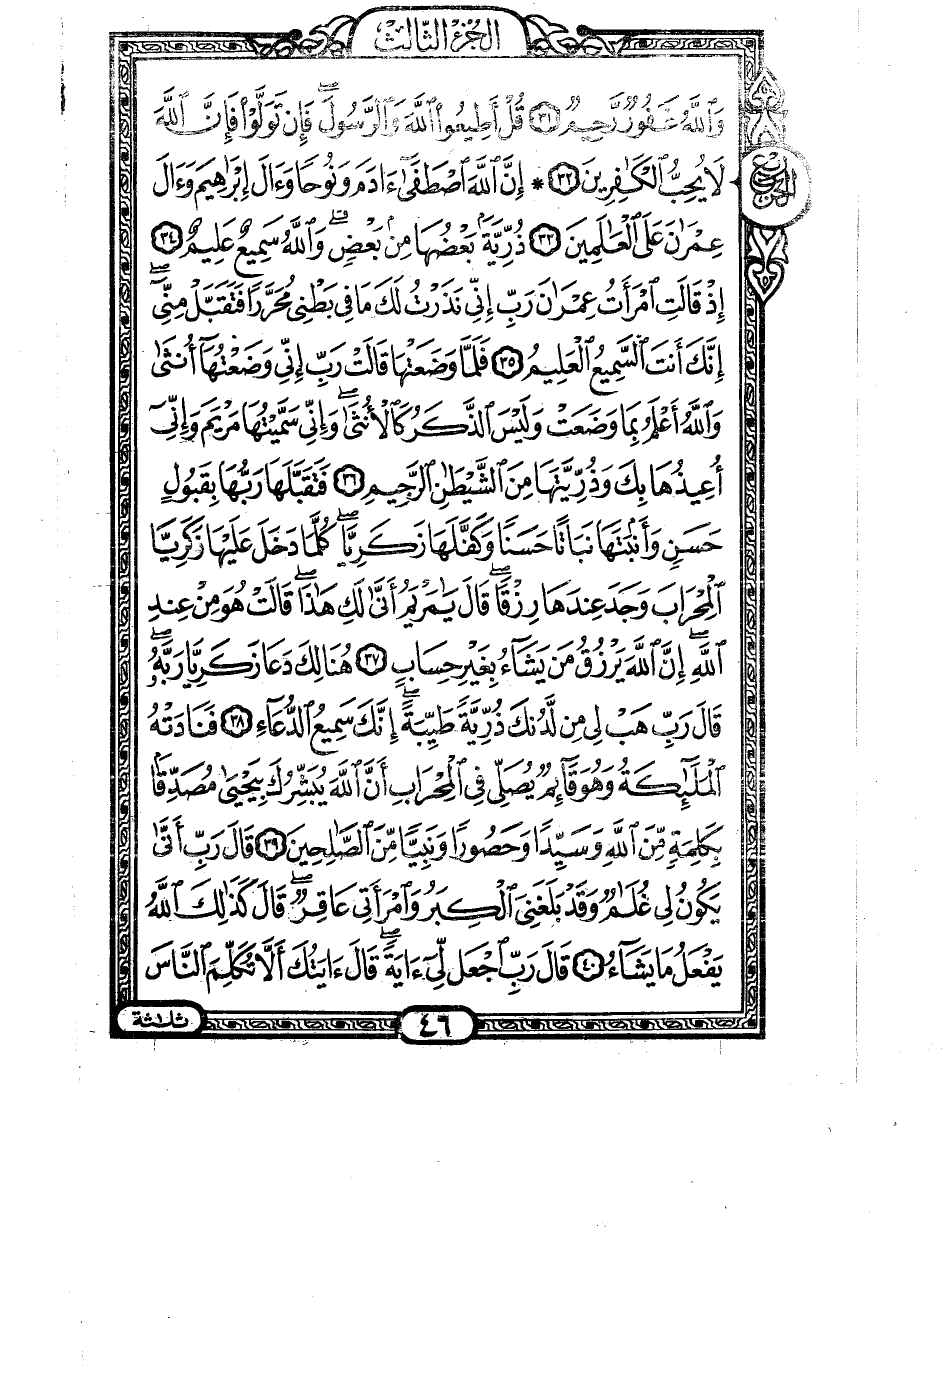 الجزء الثالث
وَٱللَّهُ غَفُورٌ رَّحِيمٌ ٣١ قُلْ أَطِيعُوا۟ ٱللَّهَ وَٱلرَّسُولَ ۖ فَإِن تَوَلَّوْا۟ فَإِنَّ ٱللَّهَ
لَا يُحِبُّ ٱلْكَٰفِرِينَ ٣٢ * إِنَّ ٱللَّهَ ٱصْطَفَىٰٓ ءَادَمَ وَنُوحًا وَءَالَ إِبْرَٰهِيمَ وَءَالَ
عِمْرَٰنَ عَلَى ٱلْعَٰلَمِينَ ٣٣ ذُرِّيَّةًۢ بَعْضُهَا مِنۢ بَعْضٍ ۗ وَٱللَّهُ سَمِيعٌ عَلِيمٌ ٣٤
إِذْ قَالَتِ ٱمْرَأَتُ عِمْرَٰنَ رَبِّ إِنِّى نَذَرْتُ لَكَ مَا فِى بَطْنِى مُحَرَّرًا فَتَقَبَّلْ مِنِّىٓ ۖ
إِنَّكَ أَنتَ ٱلسَّمِيعُ ٱلْعَلِيمُ ٣٥ فَلَمَّا وَضَعَتْهَا قَالَتْ رَبِّ إِنِّى وَضَعْتُهَآ أُنثَىٰ
وَٱللَّهُ أَعْلَمُ بِمَا وَضَعَتْ وَلَيْسَ ٱلذَّكَرُ كَٱلْأُنثَىٰ ۖ وَإِنِّى سَمَّيْتُهَا مَرْيَمَ وَإِنِّىٓ
أُعِيذُهَا بِكَ وَذُرِّيَّتَهَا مِنَ ٱلشَّيْطَٰنِ ٱلرَّجِيمِ ٣٦ فَتَقَبَّلَهَا رَبُّهَا بِقَبُولٍ
حَسَنٍ وَأَنۢبَتَهَا نَبَاتًا حَسَنًا وَكَفَّلَهَا زَكَرِيَّا ۖ كُلَّمَا دَخَلَ عَلَيْهَا زَكَرِيَّا
ٱلْمِحْرَابَ وَجَدَ عِندَهَا رِزْقًا ۖ قَالَ يَٰمَرْيَمُ أَنَّىٰ لَكِ هَٰذَا ۖ قَالَتْ هُوَ مِنْ عِندِ
ٱللَّهِ ۖ إِنَّ ٱللَّهَ يَرْزُقُ مَن يَشَآءُ بِغَيْرِ حِسَابٍ ٣٧ هُنَالِكَ دَعَا زَكَرِيَّا رَبَّهُۥ ۖ
قَالَ رَبِّ هَبْ لِى مِن لَّدُنكَ ذُرِّيَّةً طَيِّبَةً ۖ إِنَّكَ سَمِيعُ ٱلدُّعَآءِ ٣٨ فَنَادَتْهُ
ٱلْمَلَٰٓئِكَةُ وَهُوَ قَآئِمٌ يُصَلِّى فِى ٱلْمِحْرَابِ أَنَّ ٱللَّهَ يُبَشِّرُكَ بِيَحْيَىٰ مُصَدِّقًۢا
بِكَلِمَةٍ مِّنَ ٱللَّهِ وَسَيِّدًا وَحَصُورًا وَنَبِيًّا مِّنَ ٱلصَّٰلِحِينَ ٣٩ قَالَ رَبِّ أَنَّىٰ
يَكُونُ لِى غُلَٰمٌ وَقَدْ بَلَغَنِىَ ٱلْكِبَرُ وَٱمْرَأَتِى عَاقِرٌ ۖ قَالَ كَذَٰلِكَ ٱللَّهُ
يَفْعَلُ مَا يَشَآءُ ٤٠ قَالَ رَبِّ ٱجْعَل لِّىٓ ءَايَةً ۖ قَالَ ءَايَتُكَ أَلَّا تُكَلِّمَ ٱلنَّاسَ
ثلاثة
٤٦